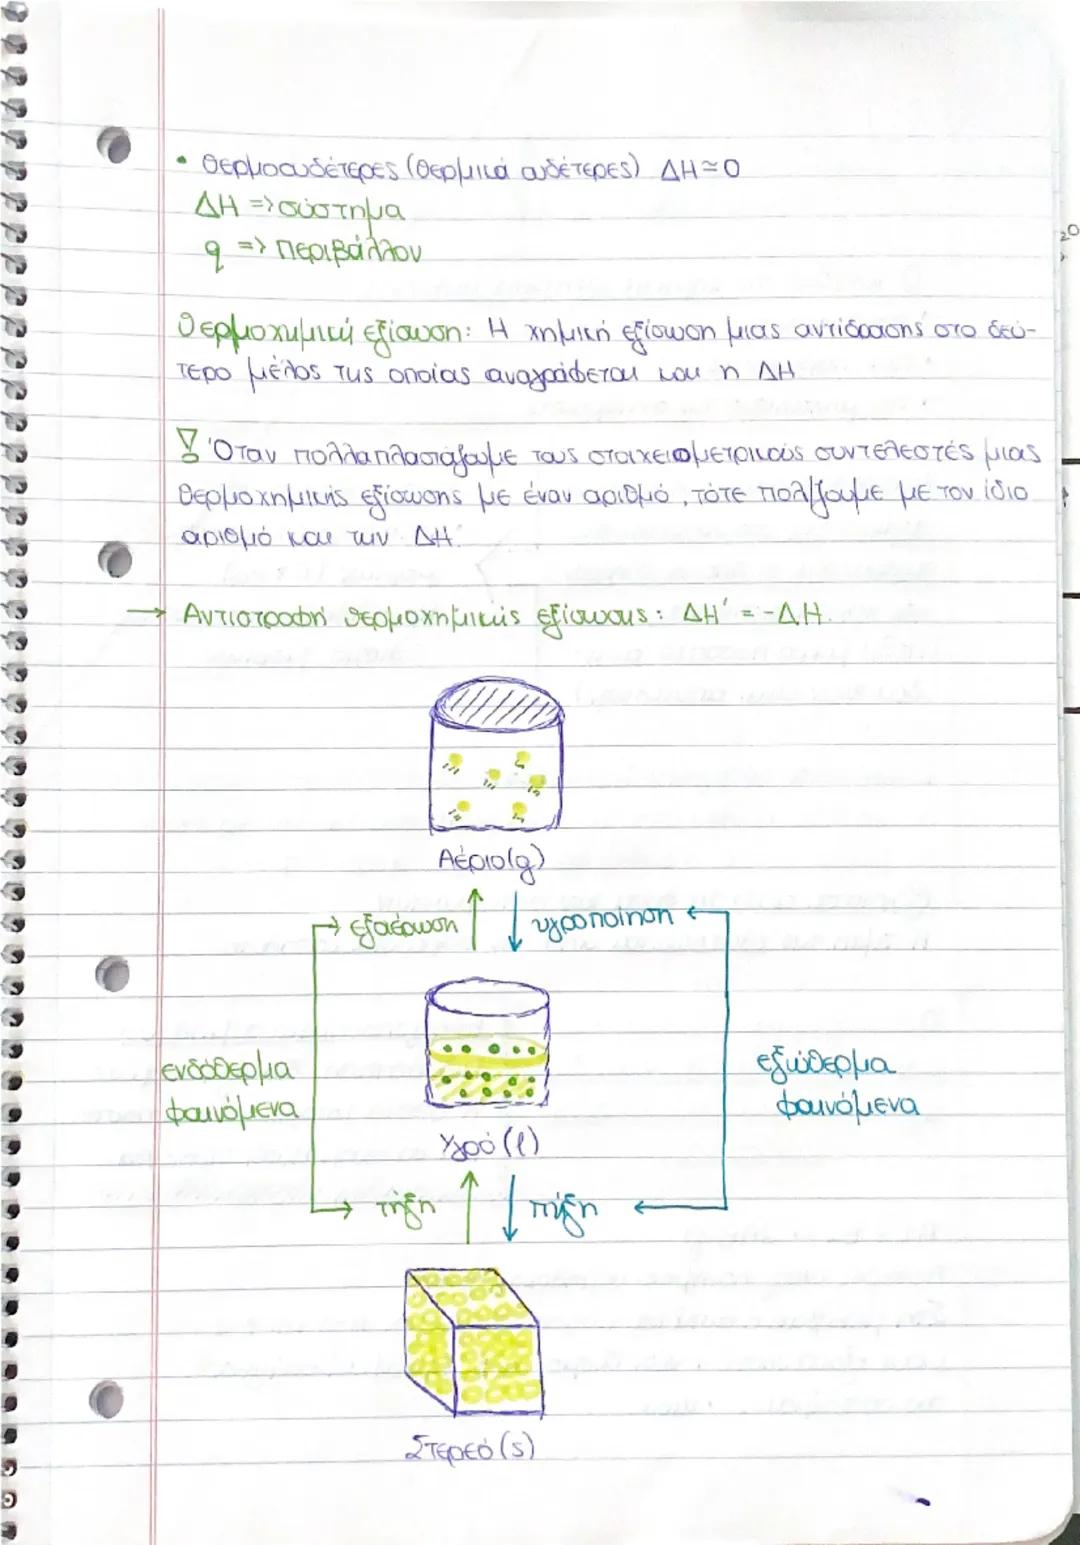 • Θερμοουδέτερες (θερμικά ουδέτερες) ΔΗ≃0
ΔΗ => σύστημα
q => περιβάλλον
Θερμοχημική εξίσωση: Η χημική εξίσωση μιας αντίδρασης στο δεύ-
τερο μέλος της οποίας αναγράφεται και η ΔΗ
! Όταν πολλαπλασιάζουμε τους στοιχειομετρικούς συντελεστές μιας
θερμοχημικής εξίσωσης με έναν αριθμό, τότε πολ/ζουμε με τον ίδιο
αριθμό και την ΔΗ.
→ Αντιστροφή θερμοχημικής εξίσωσης: ΔΗ' = -ΔΗ.
Αέριο(g)
εξαέρωση
υγροποίηση
ενδόθερμα
φαινόμενα
εξώθερμα
φαινόμενα
Υγρό (l)
τήξη
πήξη
Στερεό (s)
20